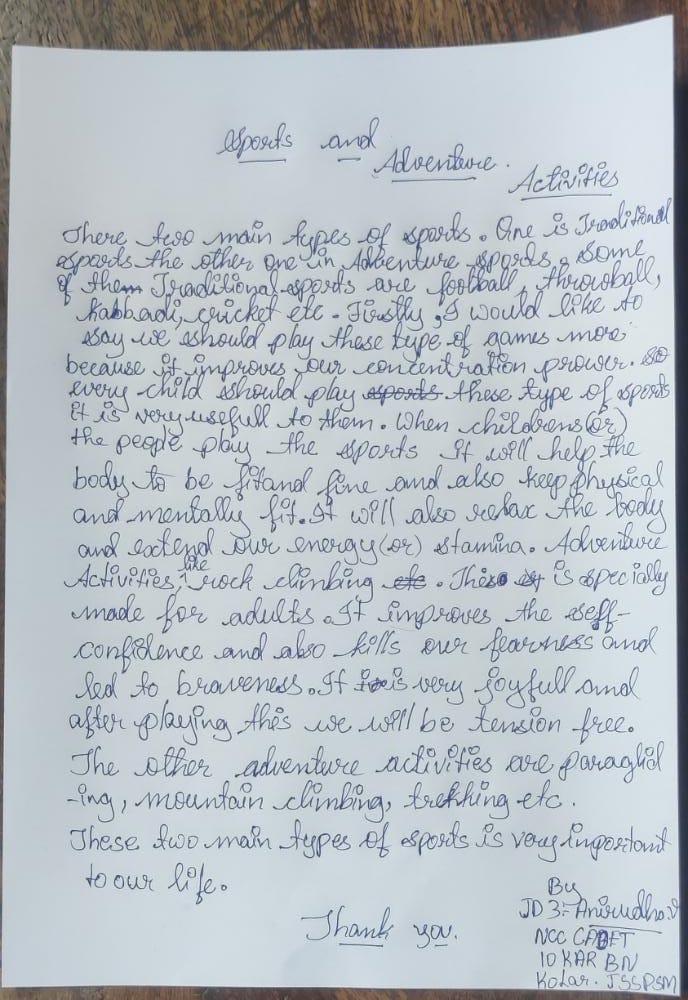 Sports and
Adventure.
Activities
There two main types of sports. One is Traditional
sports the other one in Adventure sports. Some
of them Traditional sports are football, throwball,
Kabbadi, cricket etc. Firstly, I would like to
say we should play these type of games more
because it improves our concentration prower. so
every child should play sports these type of sports
it is very usefull to them. When childrens (or)
the people play the sports it will help the
body to be fit and fine and also keep physical
and mentally fit. It will also relax the body
and extend our energy (or) stamina. Adventure
Activities, like rock climbing etc. This is especially
made for adults. It improves the self-
confidence and also kills our fearness and
led to braveness. It is very joyfull and
after playing this we will be tension free.
The other adventure activities are paraglid
-ing, mountain climbing, trekking etc.
These two main types of sports is very important
to our life.
Thank you.
By
JD 3:- Anirudha.V
NCC CADET
10 KAR BN
Kolar. JSSPSM